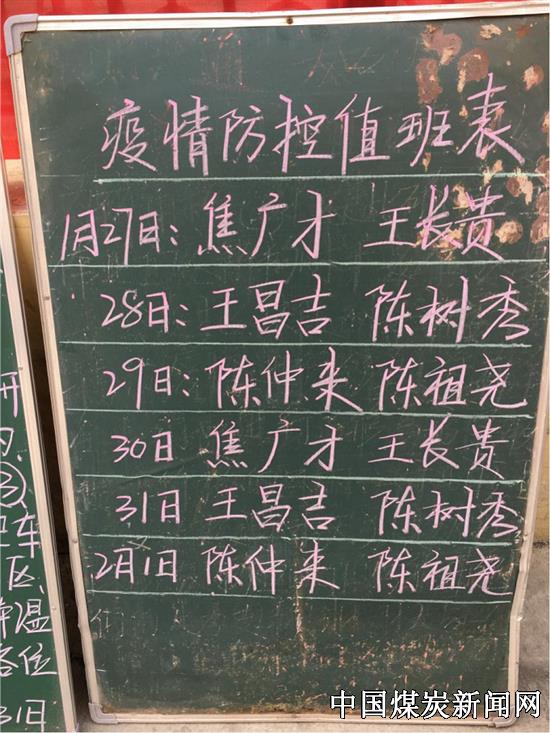 疫情防控值班表
1月27日: 焦广才 王长贵
28日: 王昌吉 陈树秀
29日: 陈仲来 陈祖尧
30日 焦广才 王长贵
31日 王昌吉 陈树秀
2月1日 陈仲来 陈祖尧
开
③
车
区
温
各位
31日
中国煤炭新闻网